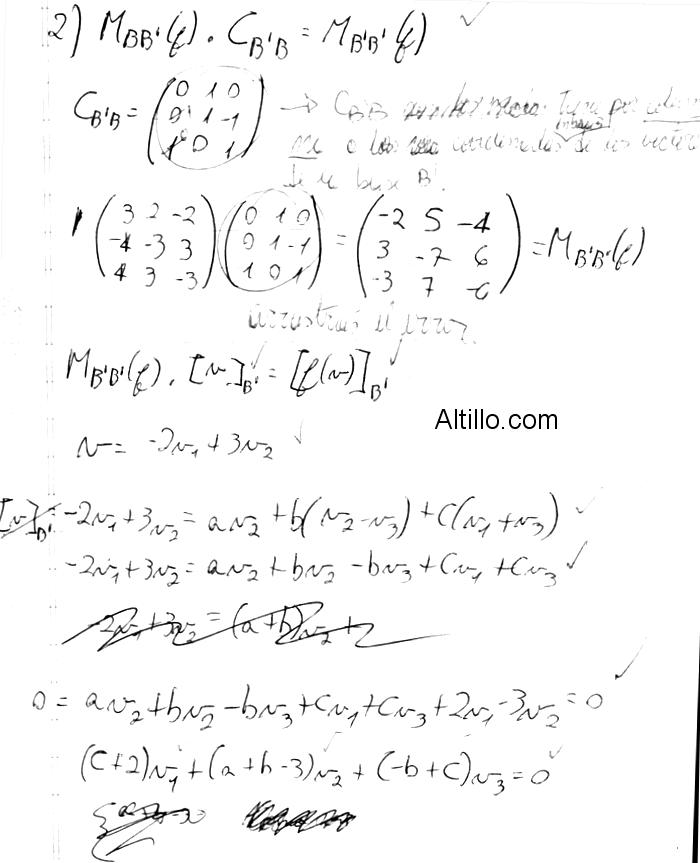 2) M_BB'(f) . C_B'B = M_B'B'(f) ✓
C_B'B = (0 1 0 / 0 1 -1 / 1 0 1) → C_B'B por
o las coordenadas de los vectores
de la base B'.
(3 2 -2 / -4 -3 3 / 4 3 -3) (0 1 0 / 0 1 -1 / 1 0 1) = (-2 5 -4 / 3 -7 6 / -3 7 -6) = M_B'B'(f)
arrastrás el error.
M_B'B'(f) . [v]_B' = [f(v)]_B' ✓
Altillo.com
v = -2v₁ + 3v₂ ✓
[v]_B': -2v₁ + 3v₂ = av₂ + b(v₂ - v₃) + c(v₁ + v₃) ✓
-2v₁ + 3v₂ = av₂ + bv₂ - bv₃ + cv₁ + cv₃ ✓
-2v₁ + 3v₂ = (a+b)v₂ +
0 = av₂ + bv₂ - bv₃ + cv₁ + cv₃ + 2v₁ - 3v₂ = 0 ✓
(c+2)v₁ + (a+b-3)v₂ + (-b+c)v₃ = 0 ✓